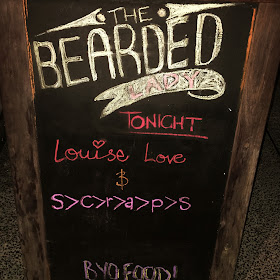 THE
BEARDED
LADY
TONIGHT
Louise Love
$
S>C>r>a>p>s
BYO FOOD!